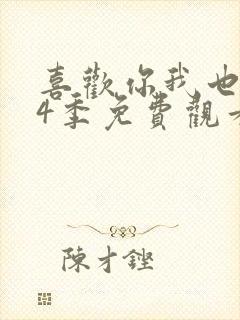 喜歡你我也
4季免費觀看
陳才鏗